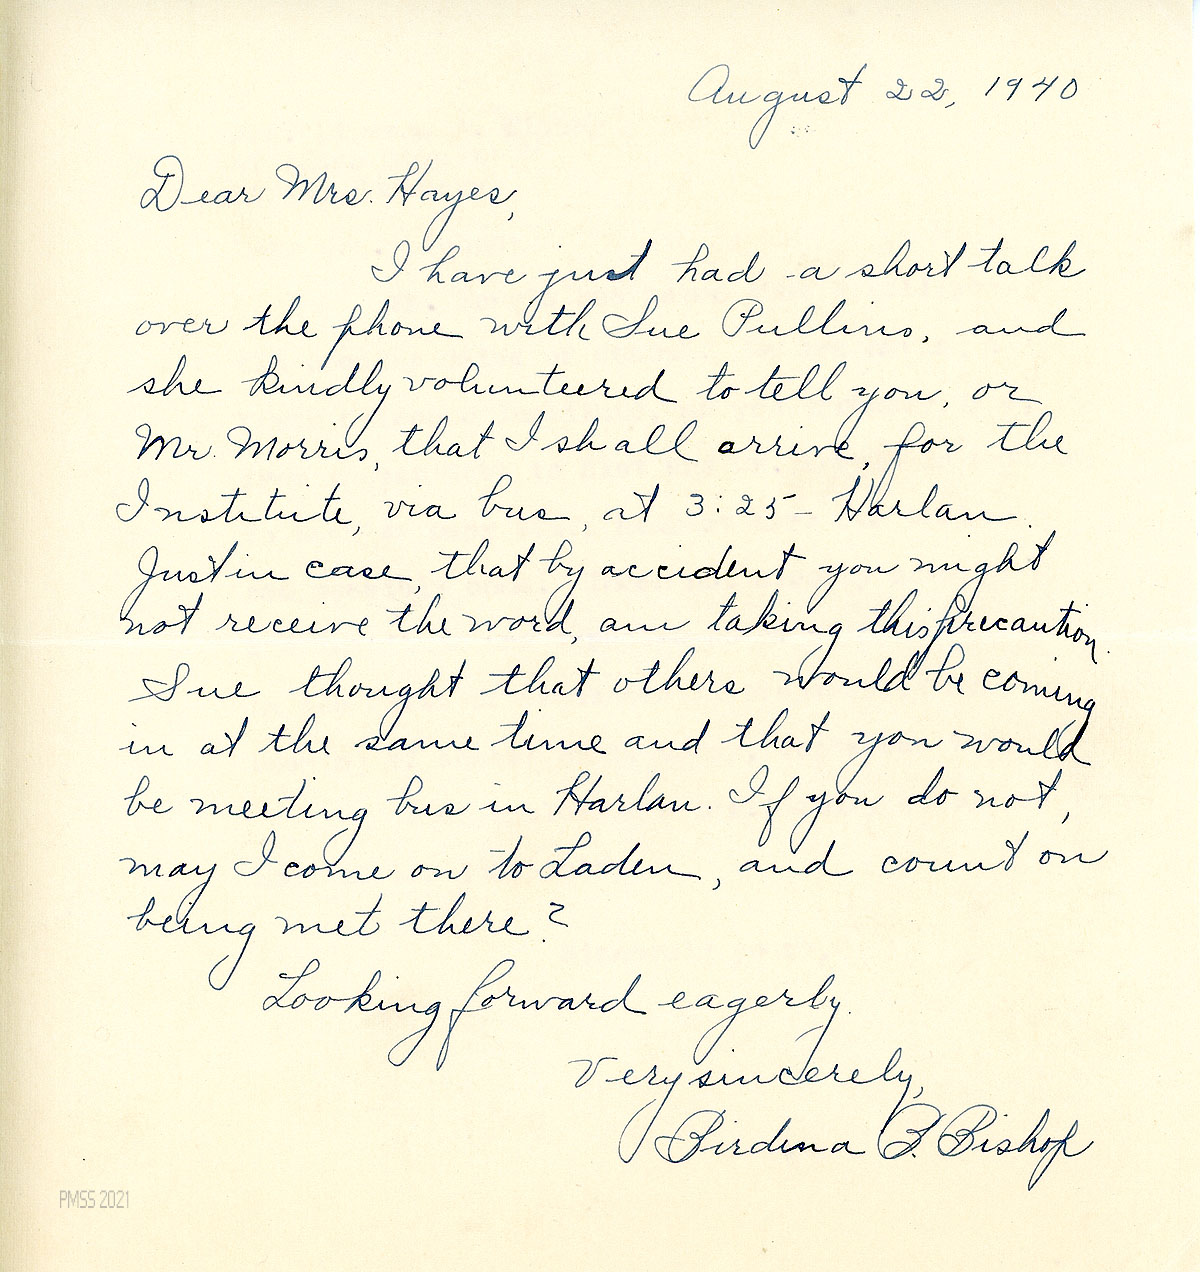 August 22, 1940
Dear Mrs. Hayes,
I have just had a short talk
over the phone with Sue Pullins, and
she kindly volunteered to tell you, or
Mr. Morris, that I shall arrive, for the
Institute, via bus, at 3:25 - Harlan.
Just in case, that by accident you might
not receive the word, am taking this precaution.
Sue thought that others would be coming
in at the same time and that you would
be meeting bus in Harlan. If you do not,
may I come on to Laden, and count on
being met there?
Looking forward eagerly.
Very sincerely,
Birdena B. Bishop
PMSS 2021